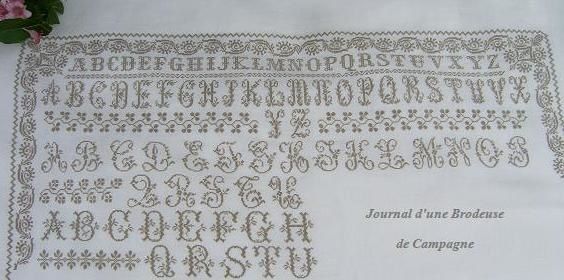 ABCDEFGHIJKLMNOPQRSTUVXYZ
ABCDEFGHIJKLMNOPQRSTUVX
YZ
ABCDE
LMNO
ABCDEFGH
QRSTU
Journal d'une Brodeuse
de Campagne